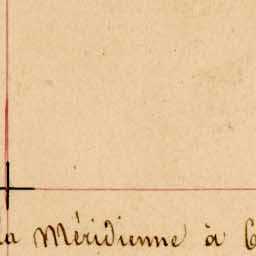 la Méridienne à